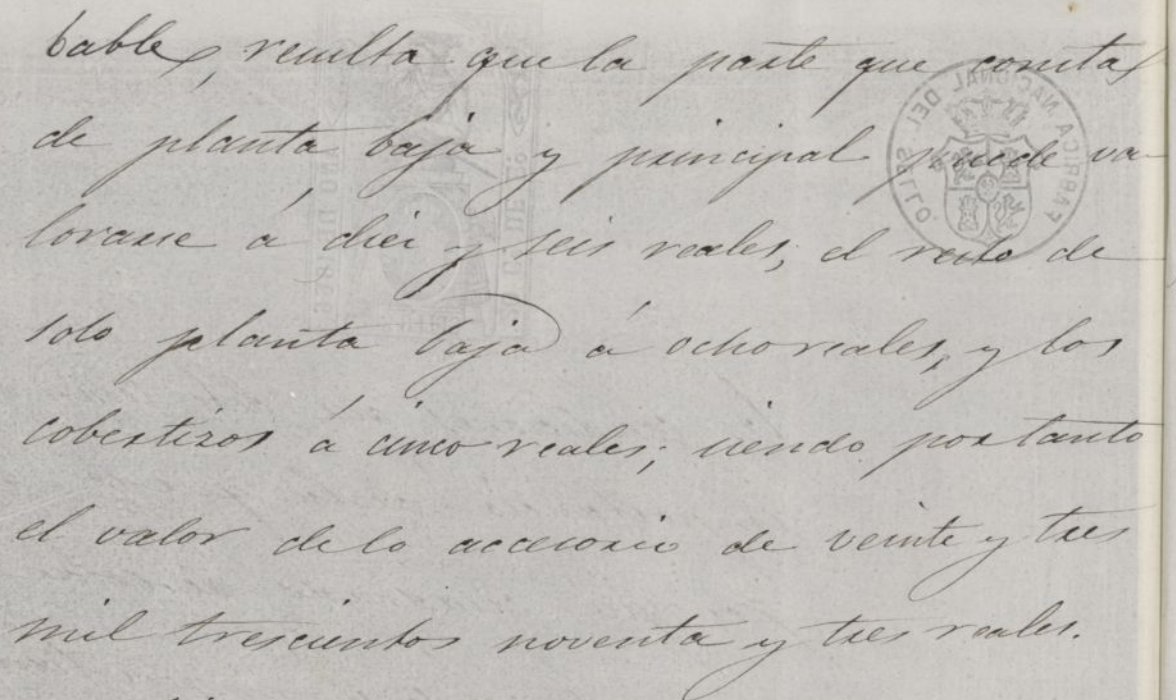 bable, resulta que la parte que consta
de planta baja y principal puede va-
lorarse á diez y seis reales; el resto de
solo planta baja á ocho reales, y los
cobertizos á cinco reales; siendo por tanto
el valor de lo accesorio de veinte y tres
mil trescientos noventa y tres reales.
FABRICA NACIONAL DEL SELLO.